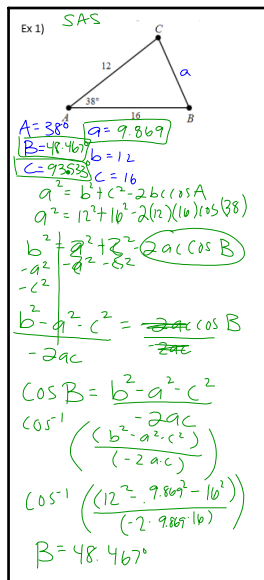 Ex 1) SAS
C
12 a
38°
A 16 B
A = 38° a = 9.869
B = 48.467° b = 12
C = 93.533° c = 16
a² = b² + c² - 2bc cos A
a² = 12² + 16² - 2(12)(16) cos(38)
b² = a² + c² - 2ac cos B
-a² -a² -c²
-c²
b² - a² - c² = -2ac cos B
-2ac -2ac
cos B = b² - a² - c²
-2ac
cos⁻¹ ((b² - a² - c²)
(-2a·c))
cos⁻¹ ((12² - 9.869² - 16²)
(-2 · 9.869 · 16))
B = 48.467°